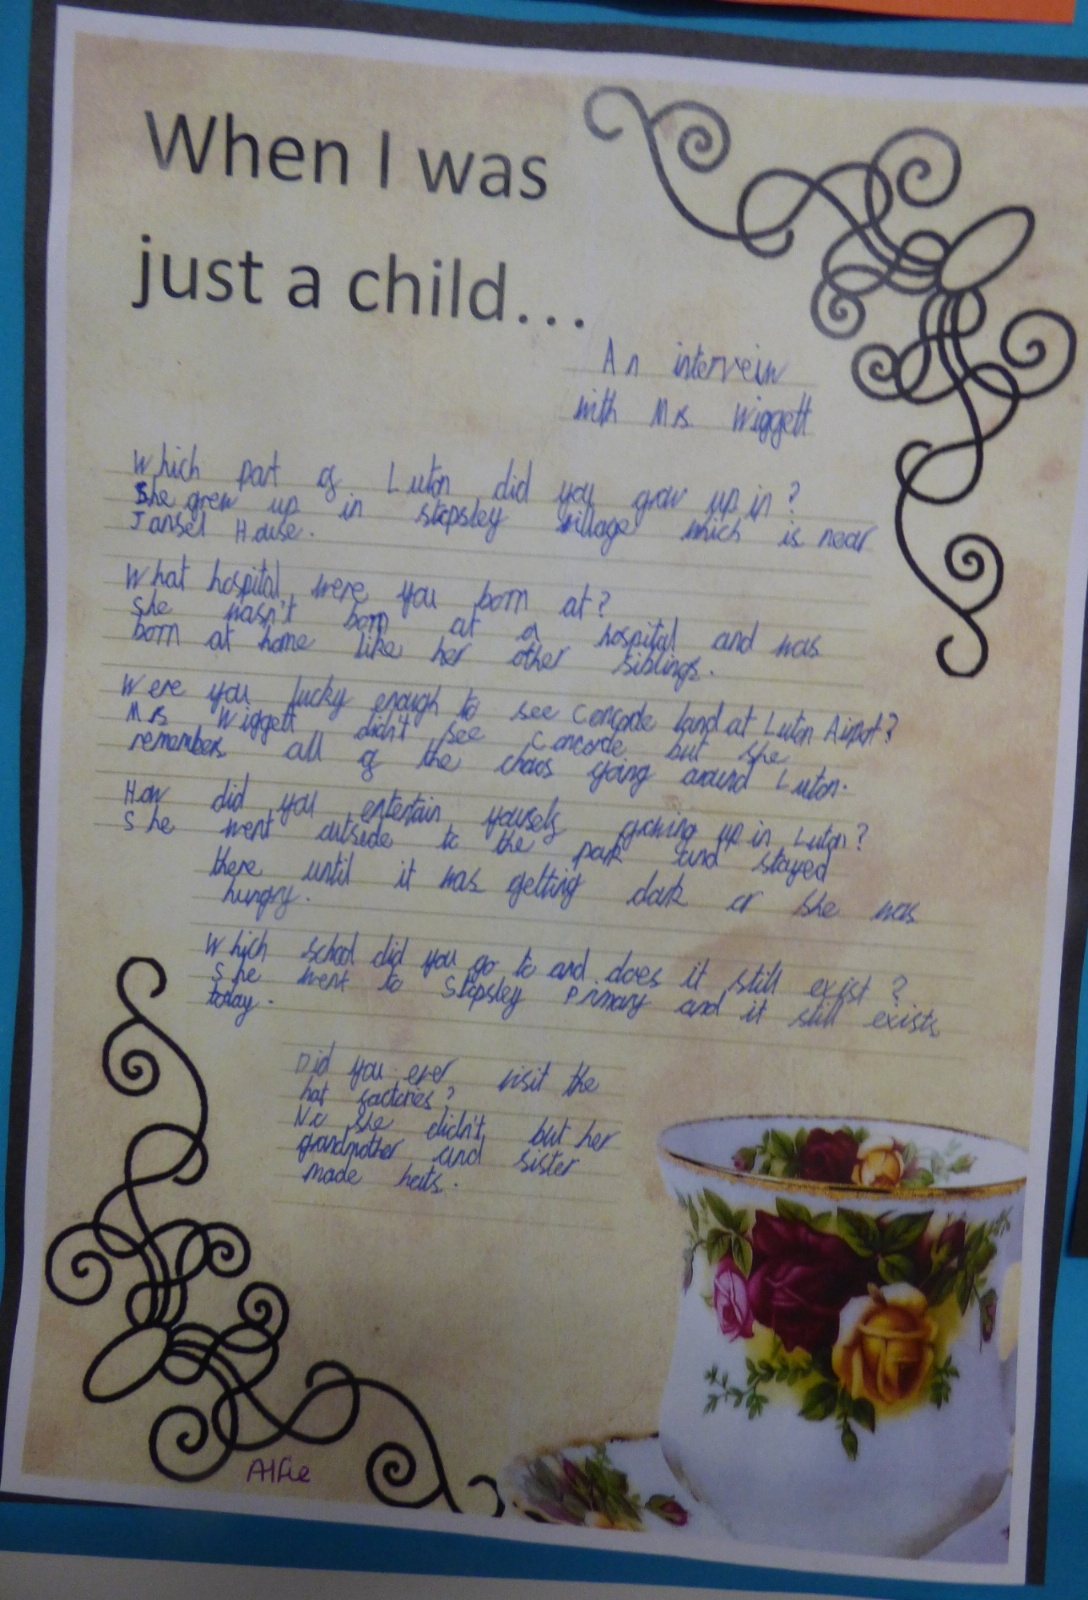 When I was
just a child...
An interveiw
with Mrs Wiggett
Which part of Luton did you grow up in?
She grew up in stopsley village which is near
Jansel House.
What hospital were you born at?
She wasn't born at a hospital and was
born at home like her other siblings.
Were you lucky enough to see Concorde land at Luton Airport?
Mrs Wiggett didn't see Concorde but she
remembers all of the chaos going around Luton.
How did you entertain yourself growing up in Luton?
She went outside to the park and stayed
there until it was getting dark or she was
hungry.
Which school did you go to and does it still exist?
She went to Stopsley Primary and it still exists
today.
Did you ever visit the
hat factories?
No she didn't but her
grandmother and sister
made hats.
Alfie